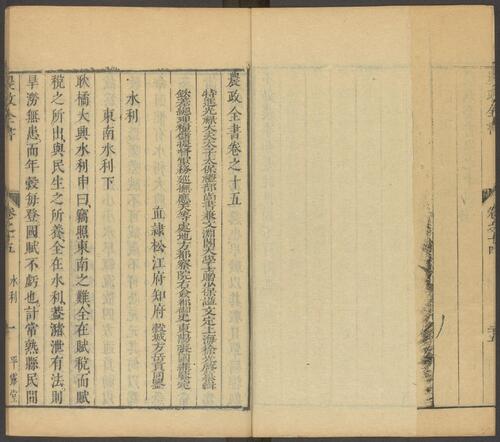 農政全書卷之十五
特進光祿大夫太子太保禮部尚書兼文淵閣大學士贈少保謚文定上海徐光啓纂輯
欽差總理糧儲提督軍務巡撫應天等處地方都察院右僉都御史東陽張國維鑒定
直隸松江府知府榖城方岳貢同鑒
水利
東南水利下
耿橘大興水利申曰竊照東南之難全在賦稅而賦
稅之所出與民生之所養全在水利蓋瀦泄有法則
旱澇無患而年穀每登國賦不虧也計常熟縣民間
農政全書
卷之十五
水利
一
平露堂